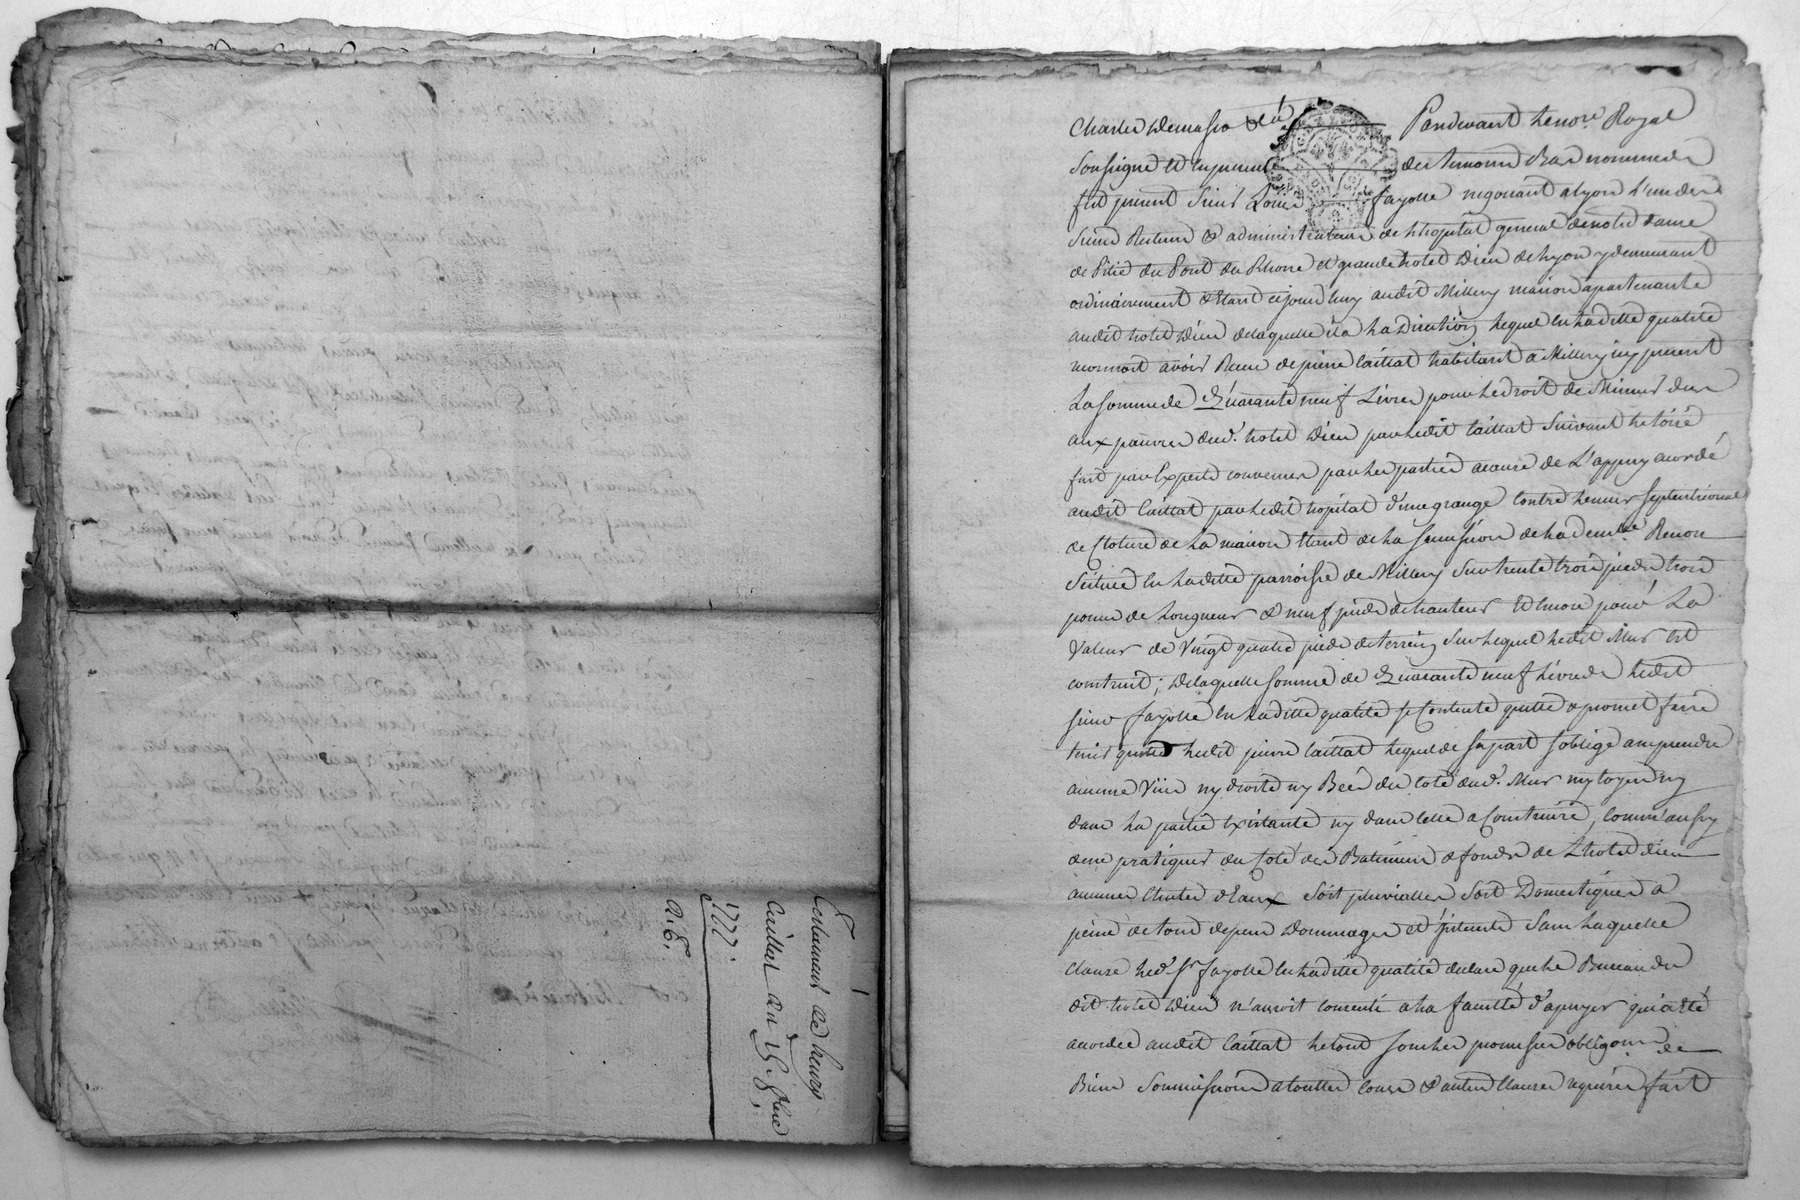 Testament de Louis
Caillat du 15. 9bre
1777.
Pardevant le nore. Royal
Soussigné et en presence des temoins Bas nommés
fut present Sieur Louis fayolle negotiant a lyon l'un des
Sieurs Recteurs & administrateurs de L'hopital general de notre dame
de Pitié du Pont du Rhône et grand hotel Dieu de Lyon y demeurant
ordinairement Etant cejourdhuy audit Millery maison apartenante
audit hotel Dieu de laquelle il a La Direction lequel en Laditte qualité
reconnoit avoir Receu de pierre Caillat habitant a Millery icy present
La somme de Quarante neuf Livres pour Le droit de Mineur deu
aux pauvres dud. hotel Dieu par Ledit Caillat Suivant le toisé
fait par Experts convenus par les parties a cause de L'appuy acordé
audit Caillat par Ledit hopital d'une grange Contre Le mur septentrional
de Cloture de La maison Etant de La Succession de La demlle Renon
Scituée en Laditte parroisse de Millery Sur trente trois pieds trois
pouces de Longueur & neuf pieds de hauteur Et encore pour La
Valeur de Vingt quatre pieds de terrein Sur Lequel Ledit Mur Est
construit; de laquelle somme de Quarante neuf Livres Ledit
Sieur fayolle en Laditte qualité se Contente quitte & promet faire
tenir quitte Ledit pierre Caillat lequel de sa part s'oblige a ne prendre
aucune Vüe ny droite ny Beée du coté dud. Mur mytoyen ny
dans La partie Existante ny dans Celle a Construire, Comm'aussy
de ne pratiquer du Coté des Batiments & fonds de L'hotel dieu
aucunes Chutes d'Eaux Soit pluvialles Soit Domestiques a
peine de tous depens Dommages et interets Sans Laquelle
Clause Led. Sr. fayolle en Laditte qualité declare que Le Bureau du
dit hotel Dieu n'auroit consenti a La faculté d'apuyer qui a eté
accordée audit Caillat Le tout sous les promesses obligons. de
Biens Soumissions a touttes Cours & autres Clauses requises fait